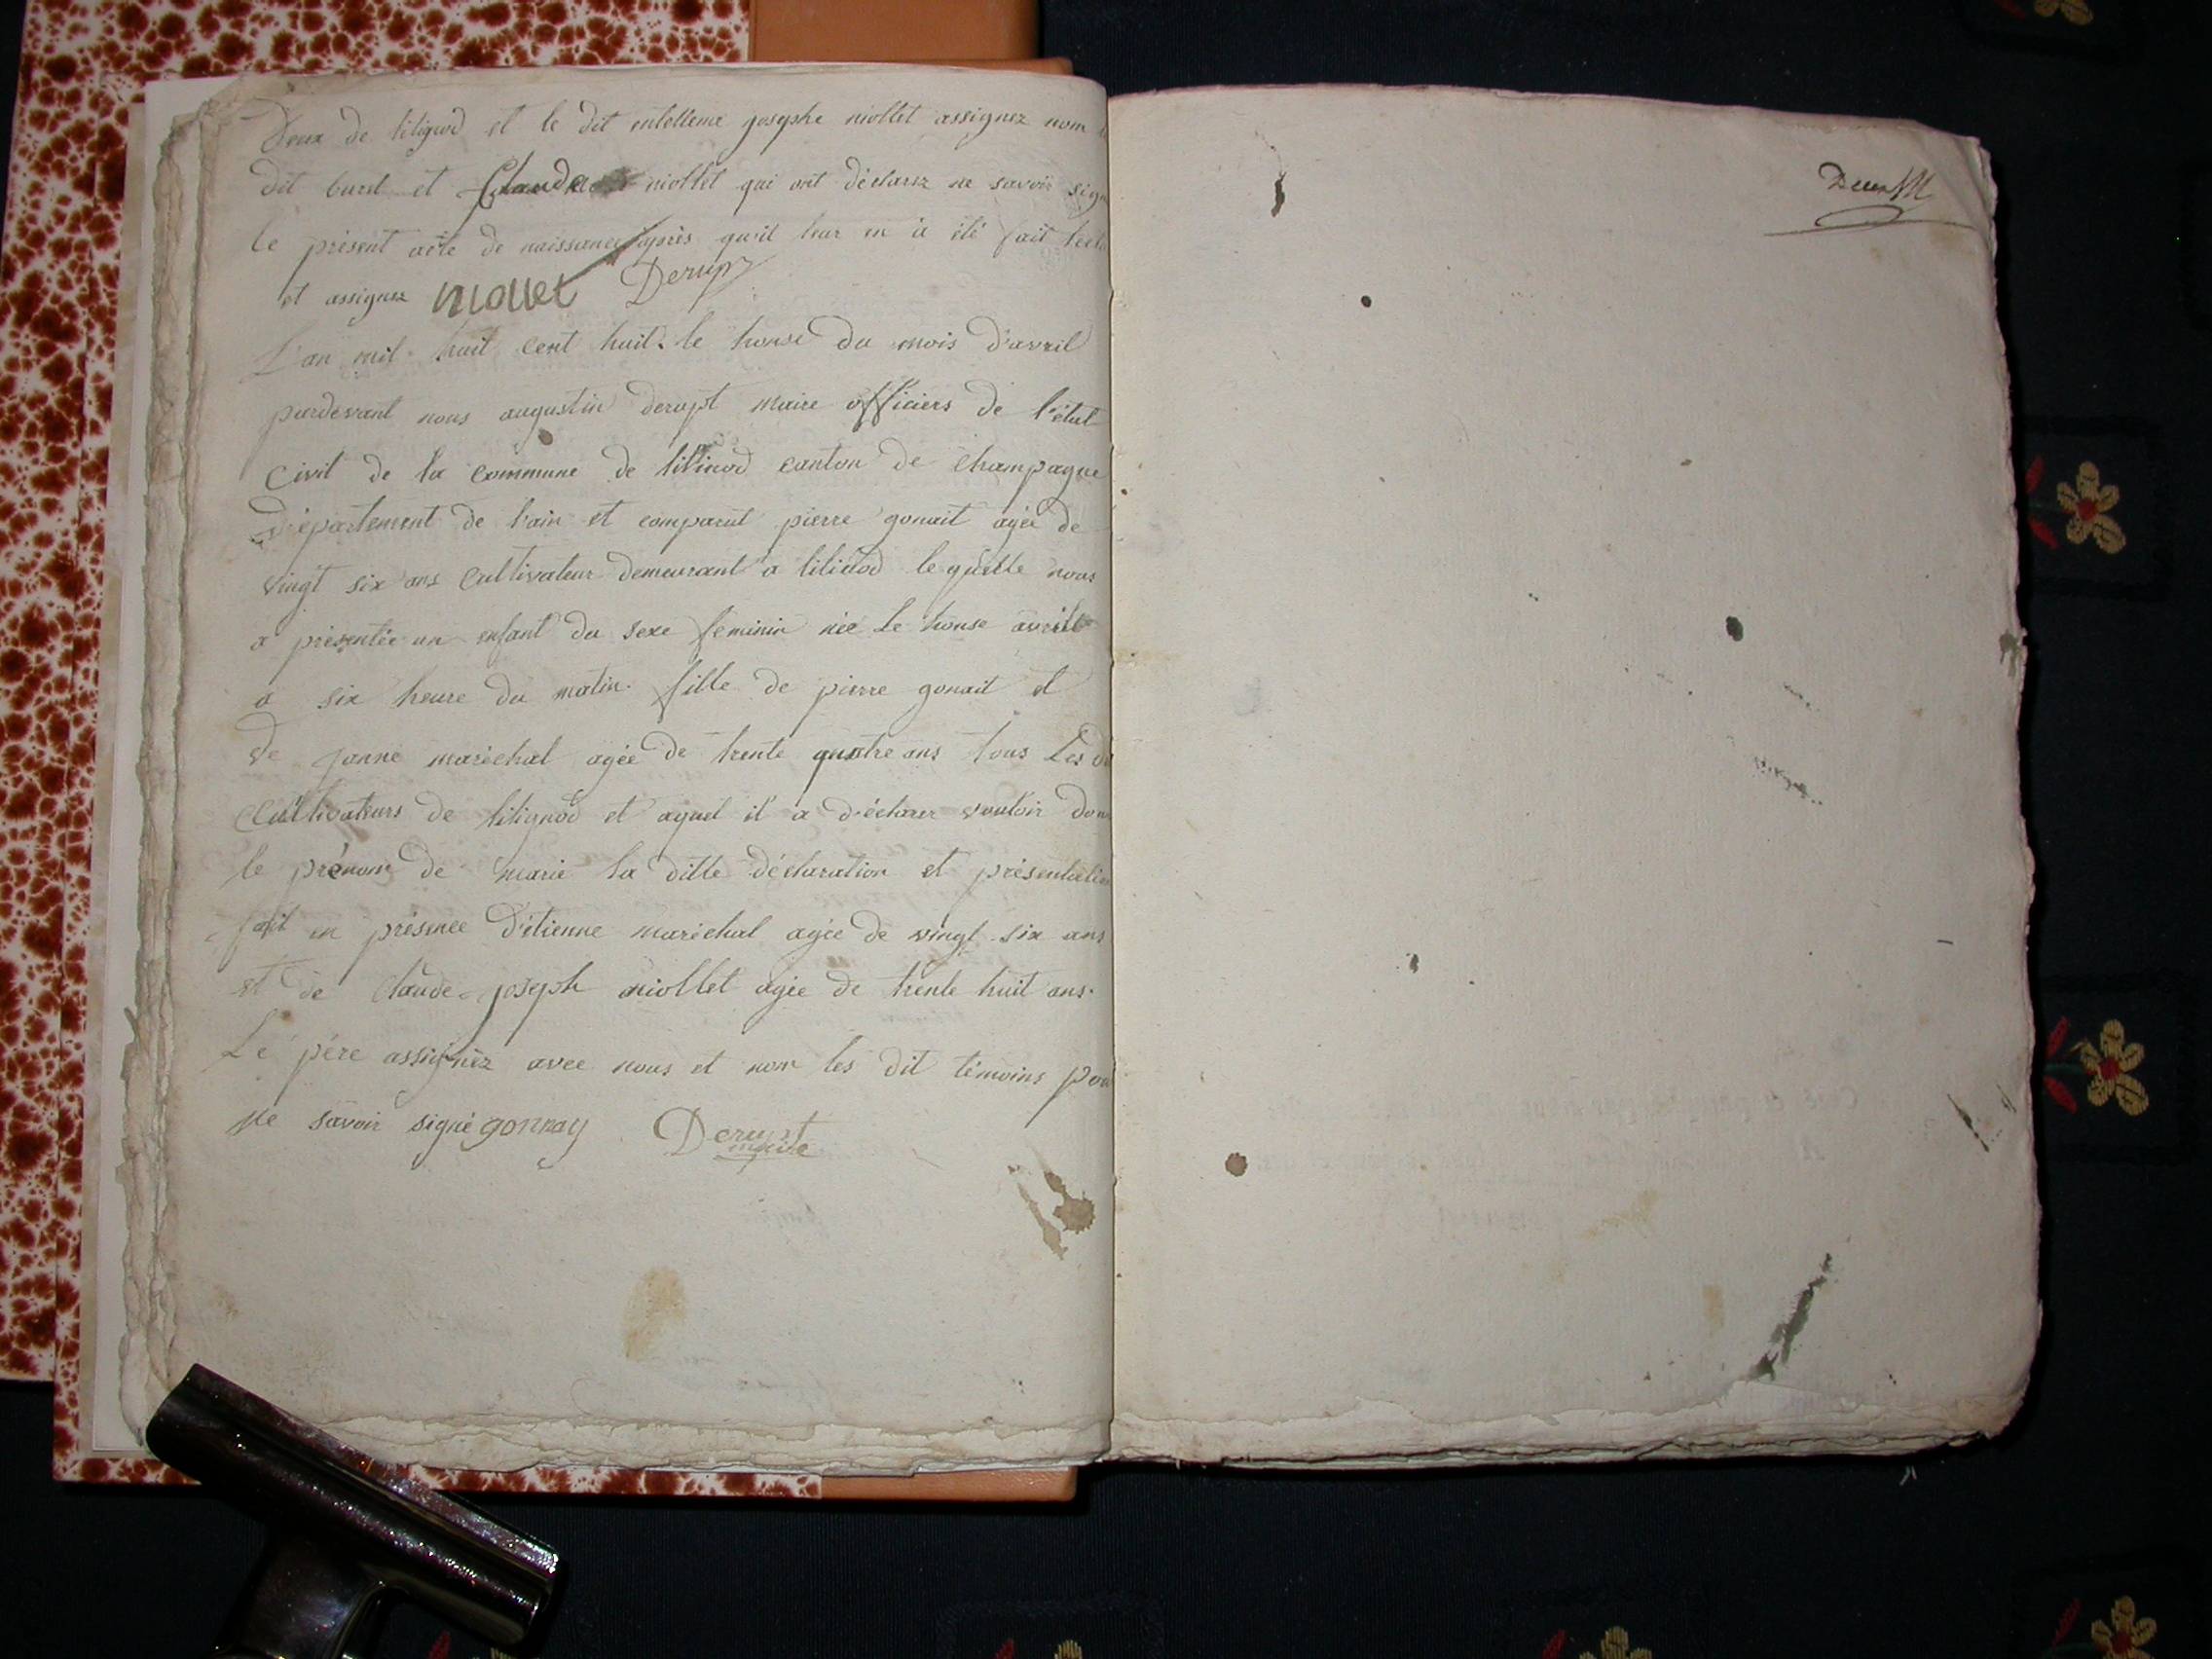 Deux de litignod et le dit entelleme josephe niollet assignez nom
dit burd et Claude niollet qui ont déclarez ne savoir sign
le présent acte de naissance après qu'il leur en à été fait lectu
et assignez niollet Derupt
L'an mil huit cent huit le honse du mois d'avril
pardevant nous augustin derupt maire officiers de l'état
Civil de la commune de litinod canton de Champagne
Département de l'ain et comparut pierre gonait agée de
vingt six ans Cultivateur demeurant a litinod lequelle nous
a présentée un enfant du sexe feminin née le honse avrile
a six heure du matin fille de pierre gonait et
de janne maréchal agée de trente quatre ans tous Les d
Cultivateurs de litignod et aquel il a déclarer vouloir don
le prénom de marie la ditte déclaration et présentation
fait en présence d'étienne maréchal agée de vingt six ans
et de Claude-joseph niollet agée de trente huit ans
Le père assignez avec nous et nom les dit témoins pou
ne savoir signé gonnay Derupt
maire
Deux